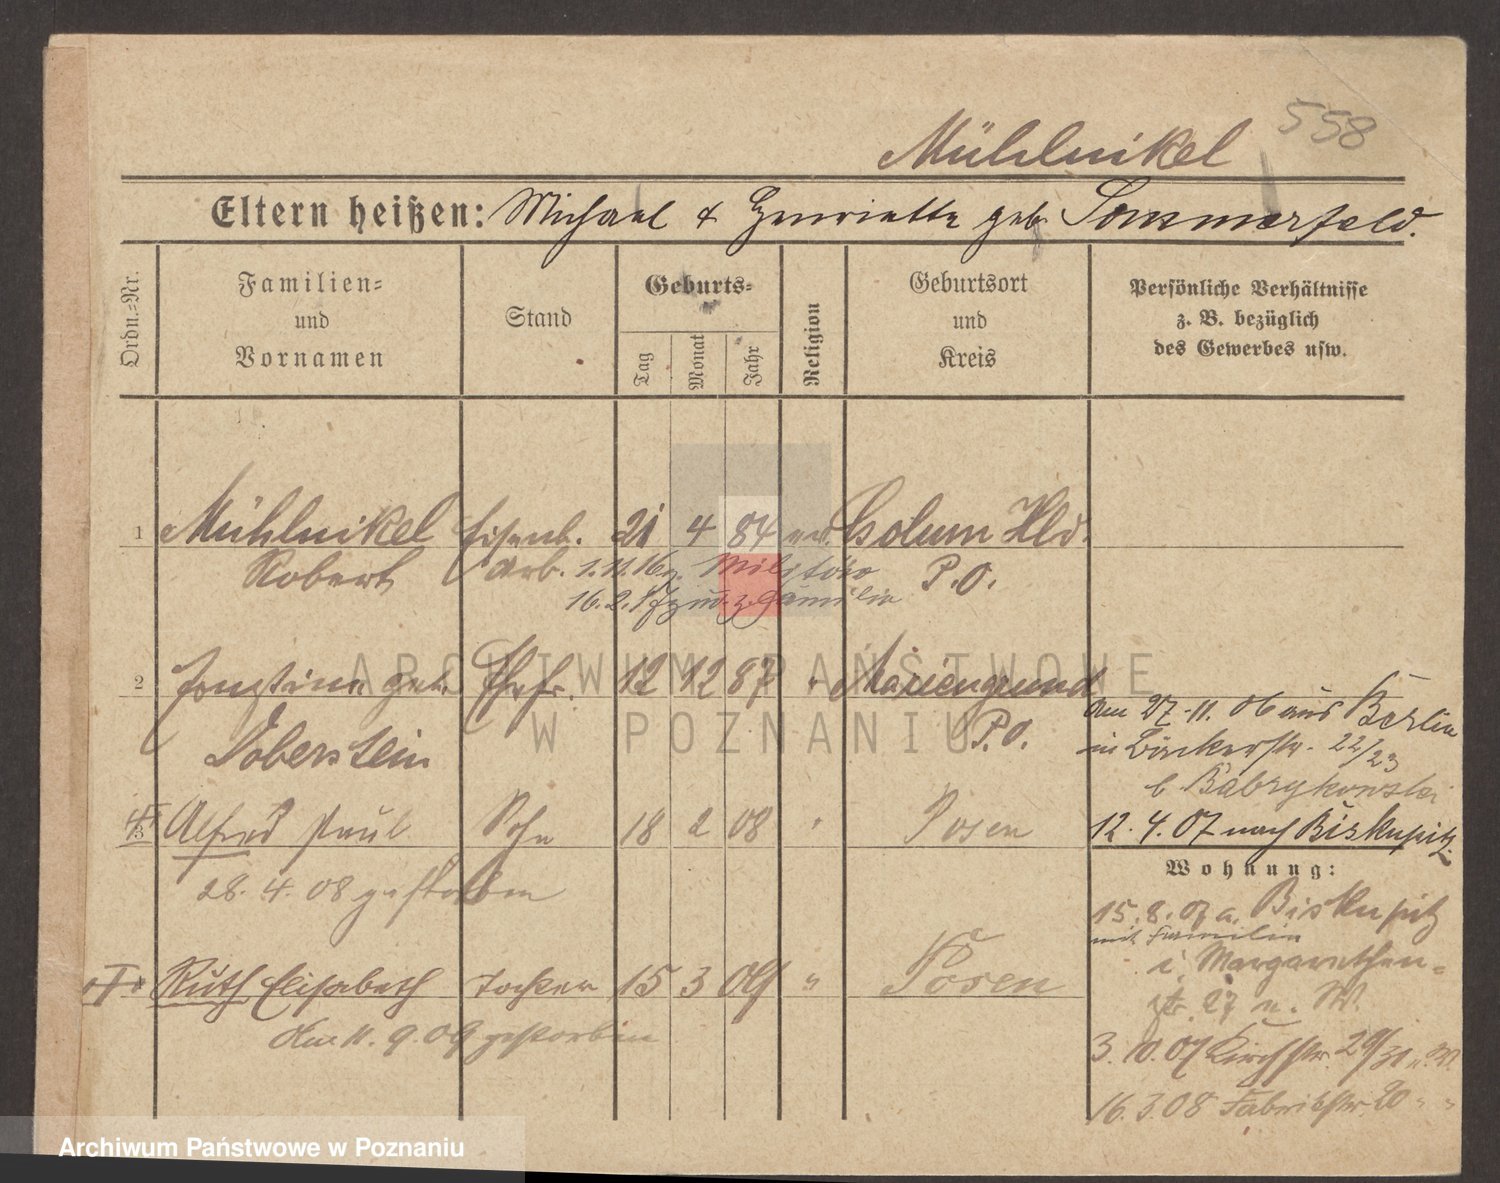 558
Mühlnikel
Eltern heißen: Michael & Henriette geb. Sommerfeld.
Ordn.-Nr.
Familien-
und
Vornamen
Stand
Geburts-
Tag
Monat
Jahr
Religion
Geburtsort
und
Kreis
Persönliche Verhältnisse
z. B. bezüglich
des Gewerbes usw.
1 Mühlnikel Eisenb. 21 4 84 ev. Golum Hld.
Robert Arb. P.O.
1.11.16 z. Militär
16.2.17 zur. z. Familie
2 geb. Ehefr. 12 12 87 " Mariengrund
Doberstein P.O.
am 27.11.06 aus Berlin
in Bäckerstr. 22/23
b. Babrykowski
12.4.07 nach Biskupitz
3 Alfred Paul Sohn 18 2 08 " Posen
28.4.08 gestorben
Wohnung:
15.8.07 a. Biskupitz
mit Familie
i. Margarethen-
str. 27
Ruth Elisabeth Tochter 15 3 09 " Posen
Am 11.9.09 gestorben
3.10.07 Kirchstr. 29/31
16.3.08 Fabrikstr. 20 " "
ARCHIWUM PAŃSTWOWE
W POZNANIU
Archiwum Państwowe w Poznaniu